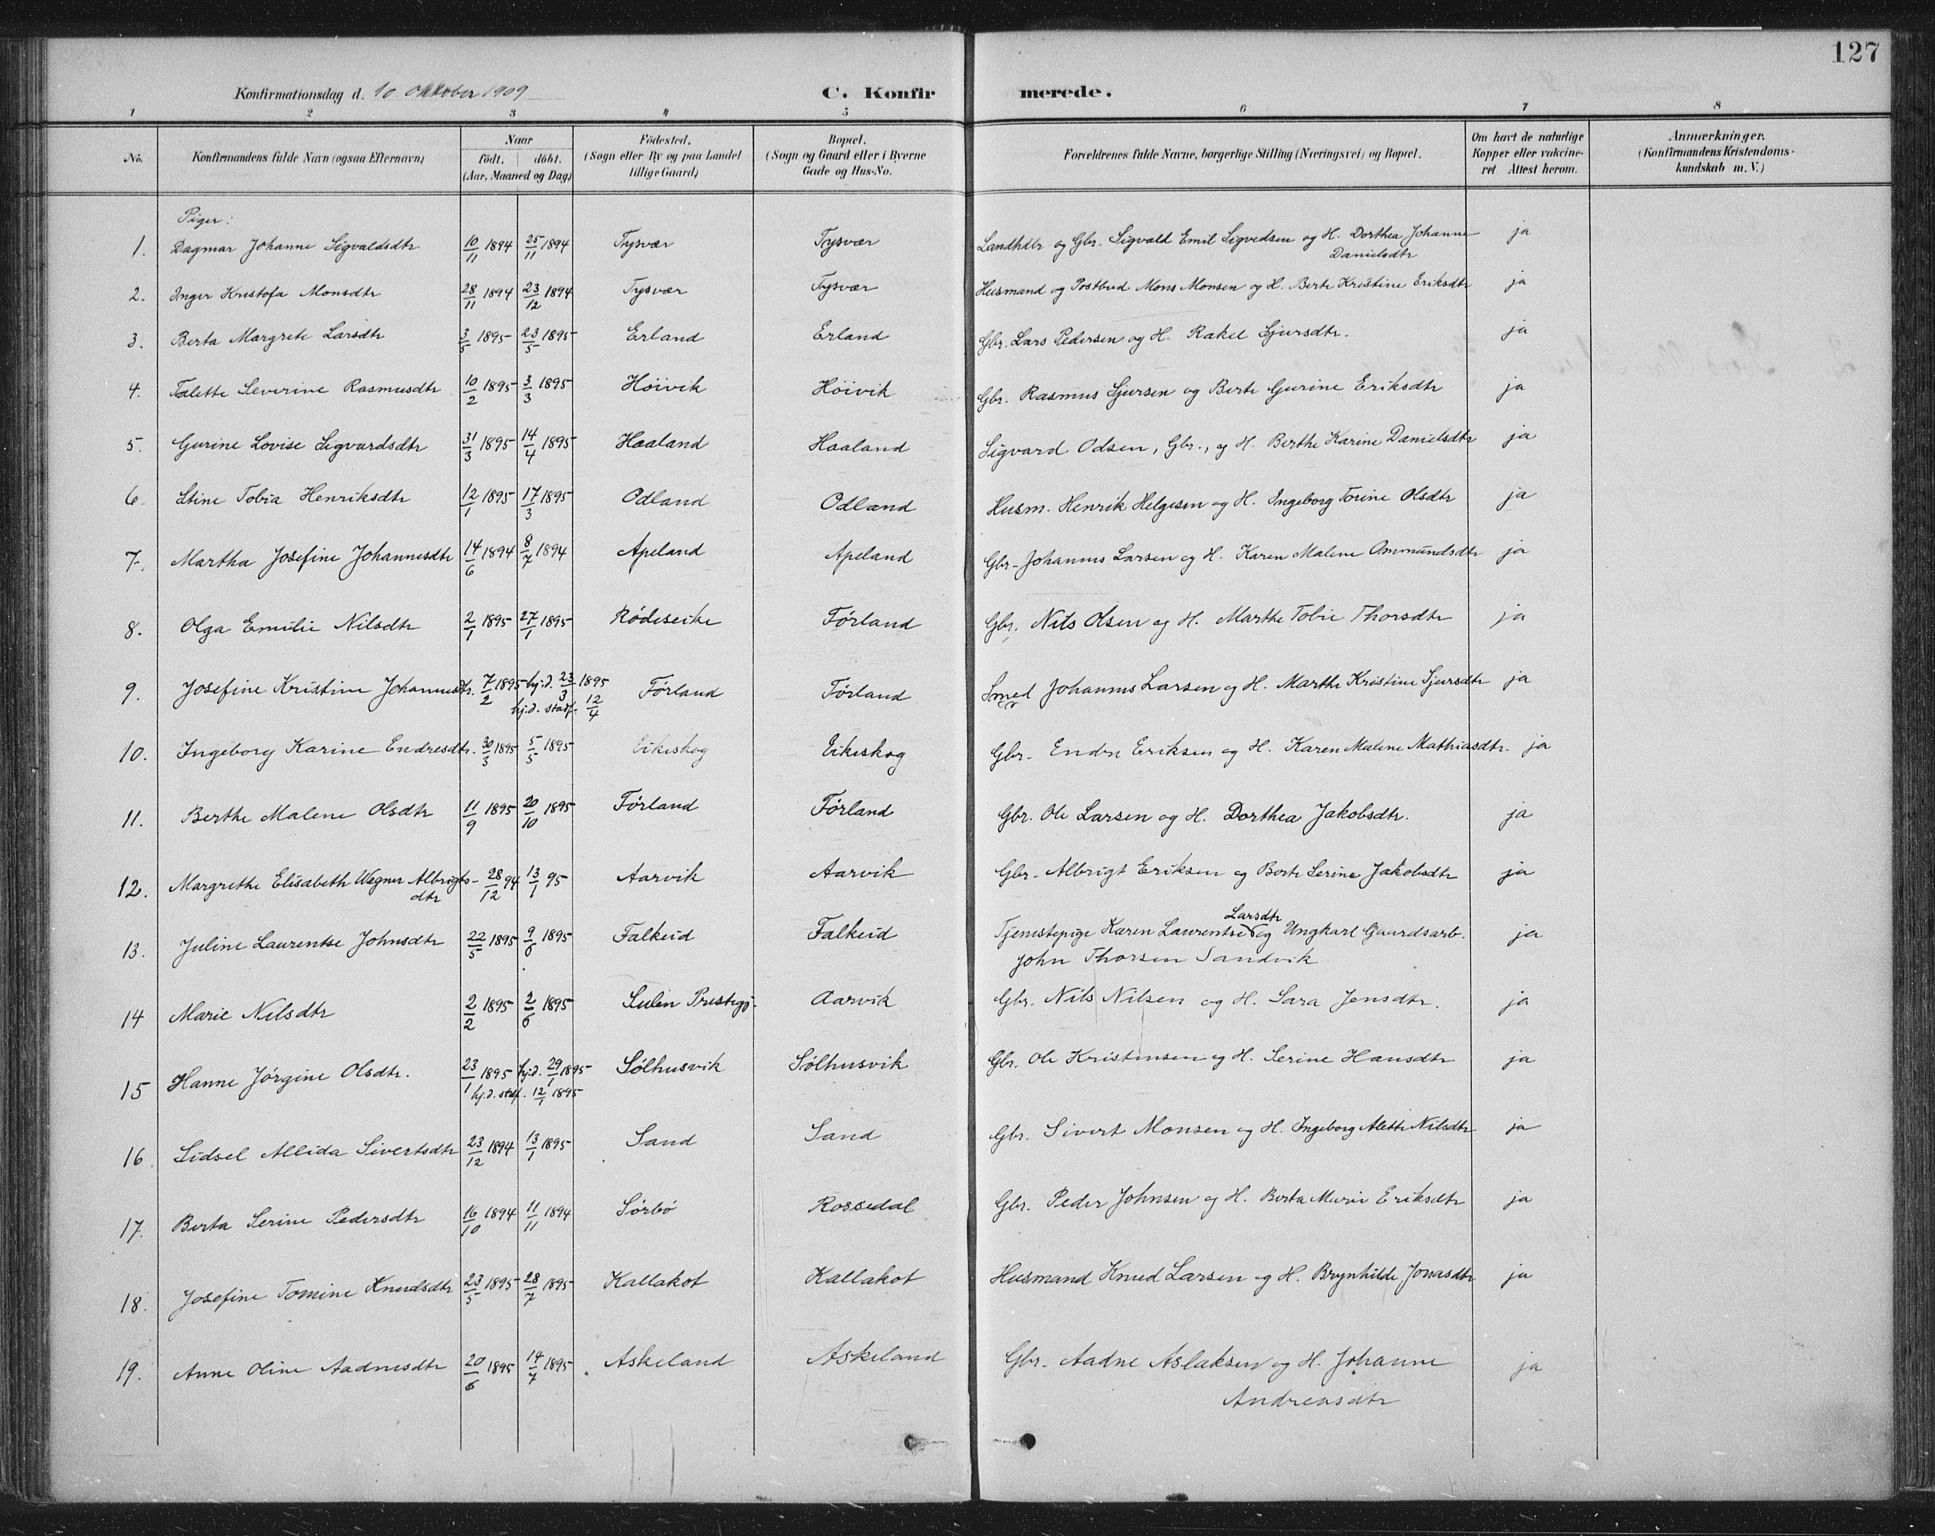 127
Konfirmationsdag d. 10 Oktober 1909 C. Konfirmerede.
1 2 3 4 5 6 7 8
No. Konfirmandens fulde Navn (ogsaa Efternavn) Naar födt. döbt. (Aar, Maaned og Dag) Födested. (Sogn eller By og paa Landet tillige Gaard) Bopæl. (Sogn og Gaard eller i Byerne Gade og Hus-No. Forældrenes fulde Navne, borgerlige Stilling (Næringsvei) og Bopæl. Om havt de naturlige Kopper eller vakcineret Attest herom. Anmærkninger. (Konfirmandens Kristendomskundskab m. V.)
Piger:
1. Dagmar Johanne Sigvaldsdtr 10/11 1894 25/11 1894 Tysvær Tysvær Landhdlr og Gbr. Sigvald Emil Sigvedsen og H. Dorthea Johanne Danielsdtr ja
2. Inger Kristofa Monsdtr 28/11 1894 23/12 1894 Tysvær Tysvær Husmand og Postbud Mons Monsen og H. Berte Kristine Eriksdtr ja
3. Berta Margrete Larsdtr 3/5 1895 23/5 1895 Erland Erland Gbr. Lars Pedersen og H. Rakel Sjursdtr. ja
4. Talette Severine Rasmusdtr 10/2 1895 3/3 1895 Höivik Höivik Gbr. Rasmus Sjursen og Berte Gurine Eriksdtr ja
5. Gurine Lovise Sigvardsdtr 31/3 1895 14/4 1895 Haaland Haaland Sigvard Odsen, Gbr., og H. Berthe Karine Danielsdtr ja
6. Stine Tobia Henriksdtr 12/1 1895 17/3 1895 Odland Odland Husm. Henrik Helgesen og H. Ingeborg Torine Olsdtr ja
7. Martha Josefine Johannesdtr 14/6 1894 8/7 1894 Apeland Apeland Gbr. Johannes Larsen og H. Karen Malene Ommundsdtr ja
8. Olga Emilie Nilsdtr 2/1 1895 27/1 1895 Rödeseike Førland Gbr. Nils Olsen og H. Marthe Tobie Thorsdtr ja
9. Josefine Kristine Johannesdtr. 7/2 1895 hj.d. 23/3 1895 hj.d. stadf. 12/4 Førland Førland Smed Johannes Larsen og H. Marthe Kristine Sjursdtr ja
10. Ingeborg Karine Endresdtr. 30/3 1895 5/5 1895 Eikeskog Eikeskog Gbr. Endre Eriksen og H. Karen Malene Mathiasdtr. ja
11. Berthe Malene Olsdtr 11/9 1895 20/10 1895 Førland Førland Gbr. Ole Larsen og H. Dorthea Jakobsdtr. ja
12. Margrethe Elisabeth Wegner Albrigtsdtr 28/12 94 13/1 95 Aarvik Aarvik Gbr. Albrigt Eriksen og Berte Serine Jakobsdtr ja
13. Juline Laurentse Johnsdtr 22/5 1895 9/6 1895 Falkeid Falkeid Tjenestepige Karen Laurentse Larsdtr og Ungkarl Gaardsarb. John Thorsen Sandvik ja
14 Marie Nilsdtr 2/2 1895 2/6 1895 Sulen Prestegj. Aarvik Gbr. Nils Nilsen og H. Sara Jensdtr. ja
15 Hanne Jørgine Olsdtr. 23/1 1895 hj.d. 29/1 1895 hj.d. stadf. 12/1 1895 Sølhusvik Sølhusvik Gbr. Ole Kristensen og H. Serine Hansdtr ja
16. Sidsel Allida Sivertsdtr 23/12 1894 13/1 1895 Sand Sand Gbr. Sivert Monsen og H. Ingeborg Alette Nilsdtr ja
17. Berta Serine Pedersdtr 16/10 1894 11/11 1894 Sörbö Rossedal Gbr. Peder Johnsen og H. Berta Marie Eriksdtr ja
18. Josefine Tomine Knudsdtr 23/5 1895 28/7 1895 Kallakot Kallakot Husmand Knud Larsen og H. Brynhilde Jonasdtr ja
19. Anne Oline Aadnesdtr 20/6 1895 14/7 1895 Askeland Askeland Gbr. Aadne Aslaksen og H. Johanne Andreasdtr ja